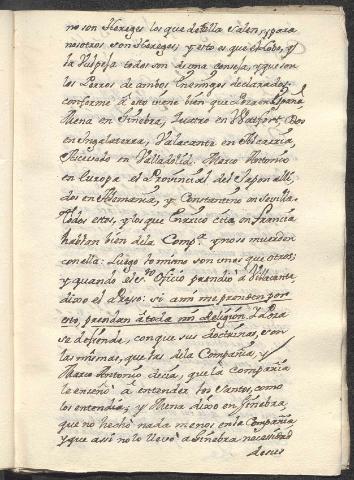 no son Hereges los que de ella salen, para
nosotros son Hereges; y esto es que el Lobo, y
la Vulpeja todos son de una conseja, y que son
los Perros de ambos Enemigos declarados:
conforme a esto viene bien que
Mena en Ginebra, quatro en Dos
en Inglaterra, Valacante en
en Valladolid. Marco Antonio
en Europa el Provincial del Japon
dos en Alemania, y Constantino en Sevilla.
todos estos, y los que Enrico cita en Francia
hablan bien de la Comp.ª y no se muerden
con ella: Luego lo mismo son unos que otros;
y quando el S.to Oficio prendiò à
dixo el Preso: si a mi me prenden por
esto, prendan à toda mi Religion.
se defiende, con que sus doctrinas, son
las mismas, que las de la Compañia, y
Marco Antonio decia, que la Compañia
le enseñò à entender los Santos, como
los entendia; y Mena dixo en Ginebra,
que no hechò nada menos en la Compañia
y que assi no lo llevò a Ginebra necessidad
de sus